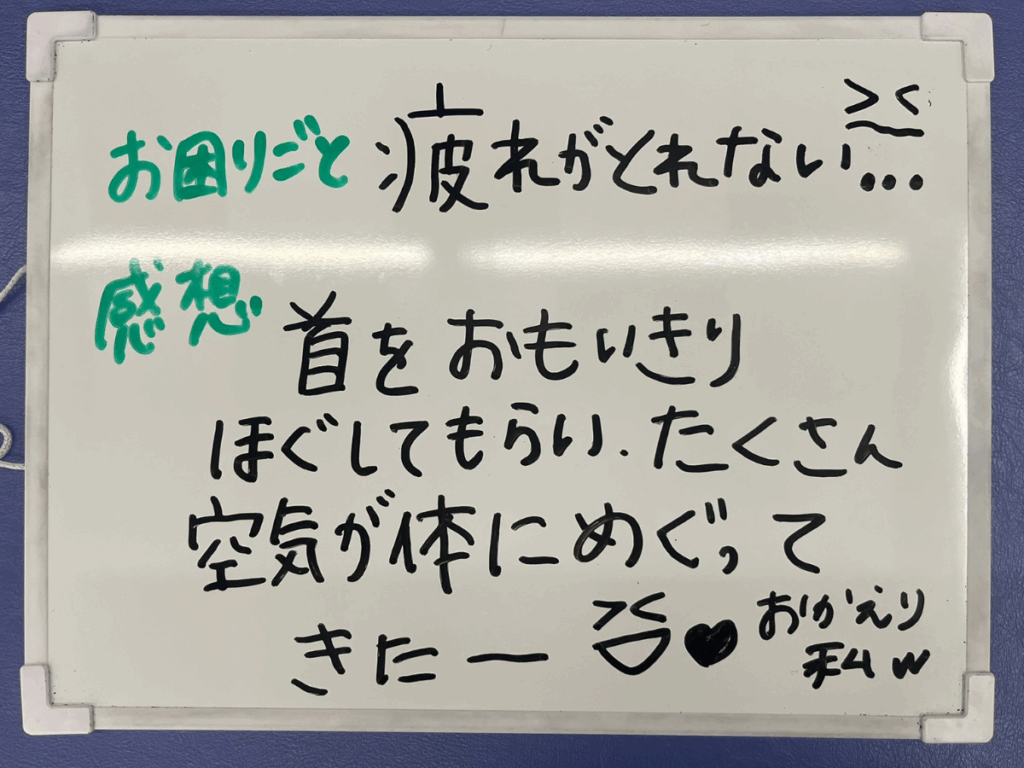 お困りごと 疲れがとれない...
感想
首をおもいきり
ほぐしてもらい、たくさん
空気が体にめぐって
きたー
おかえり
私w